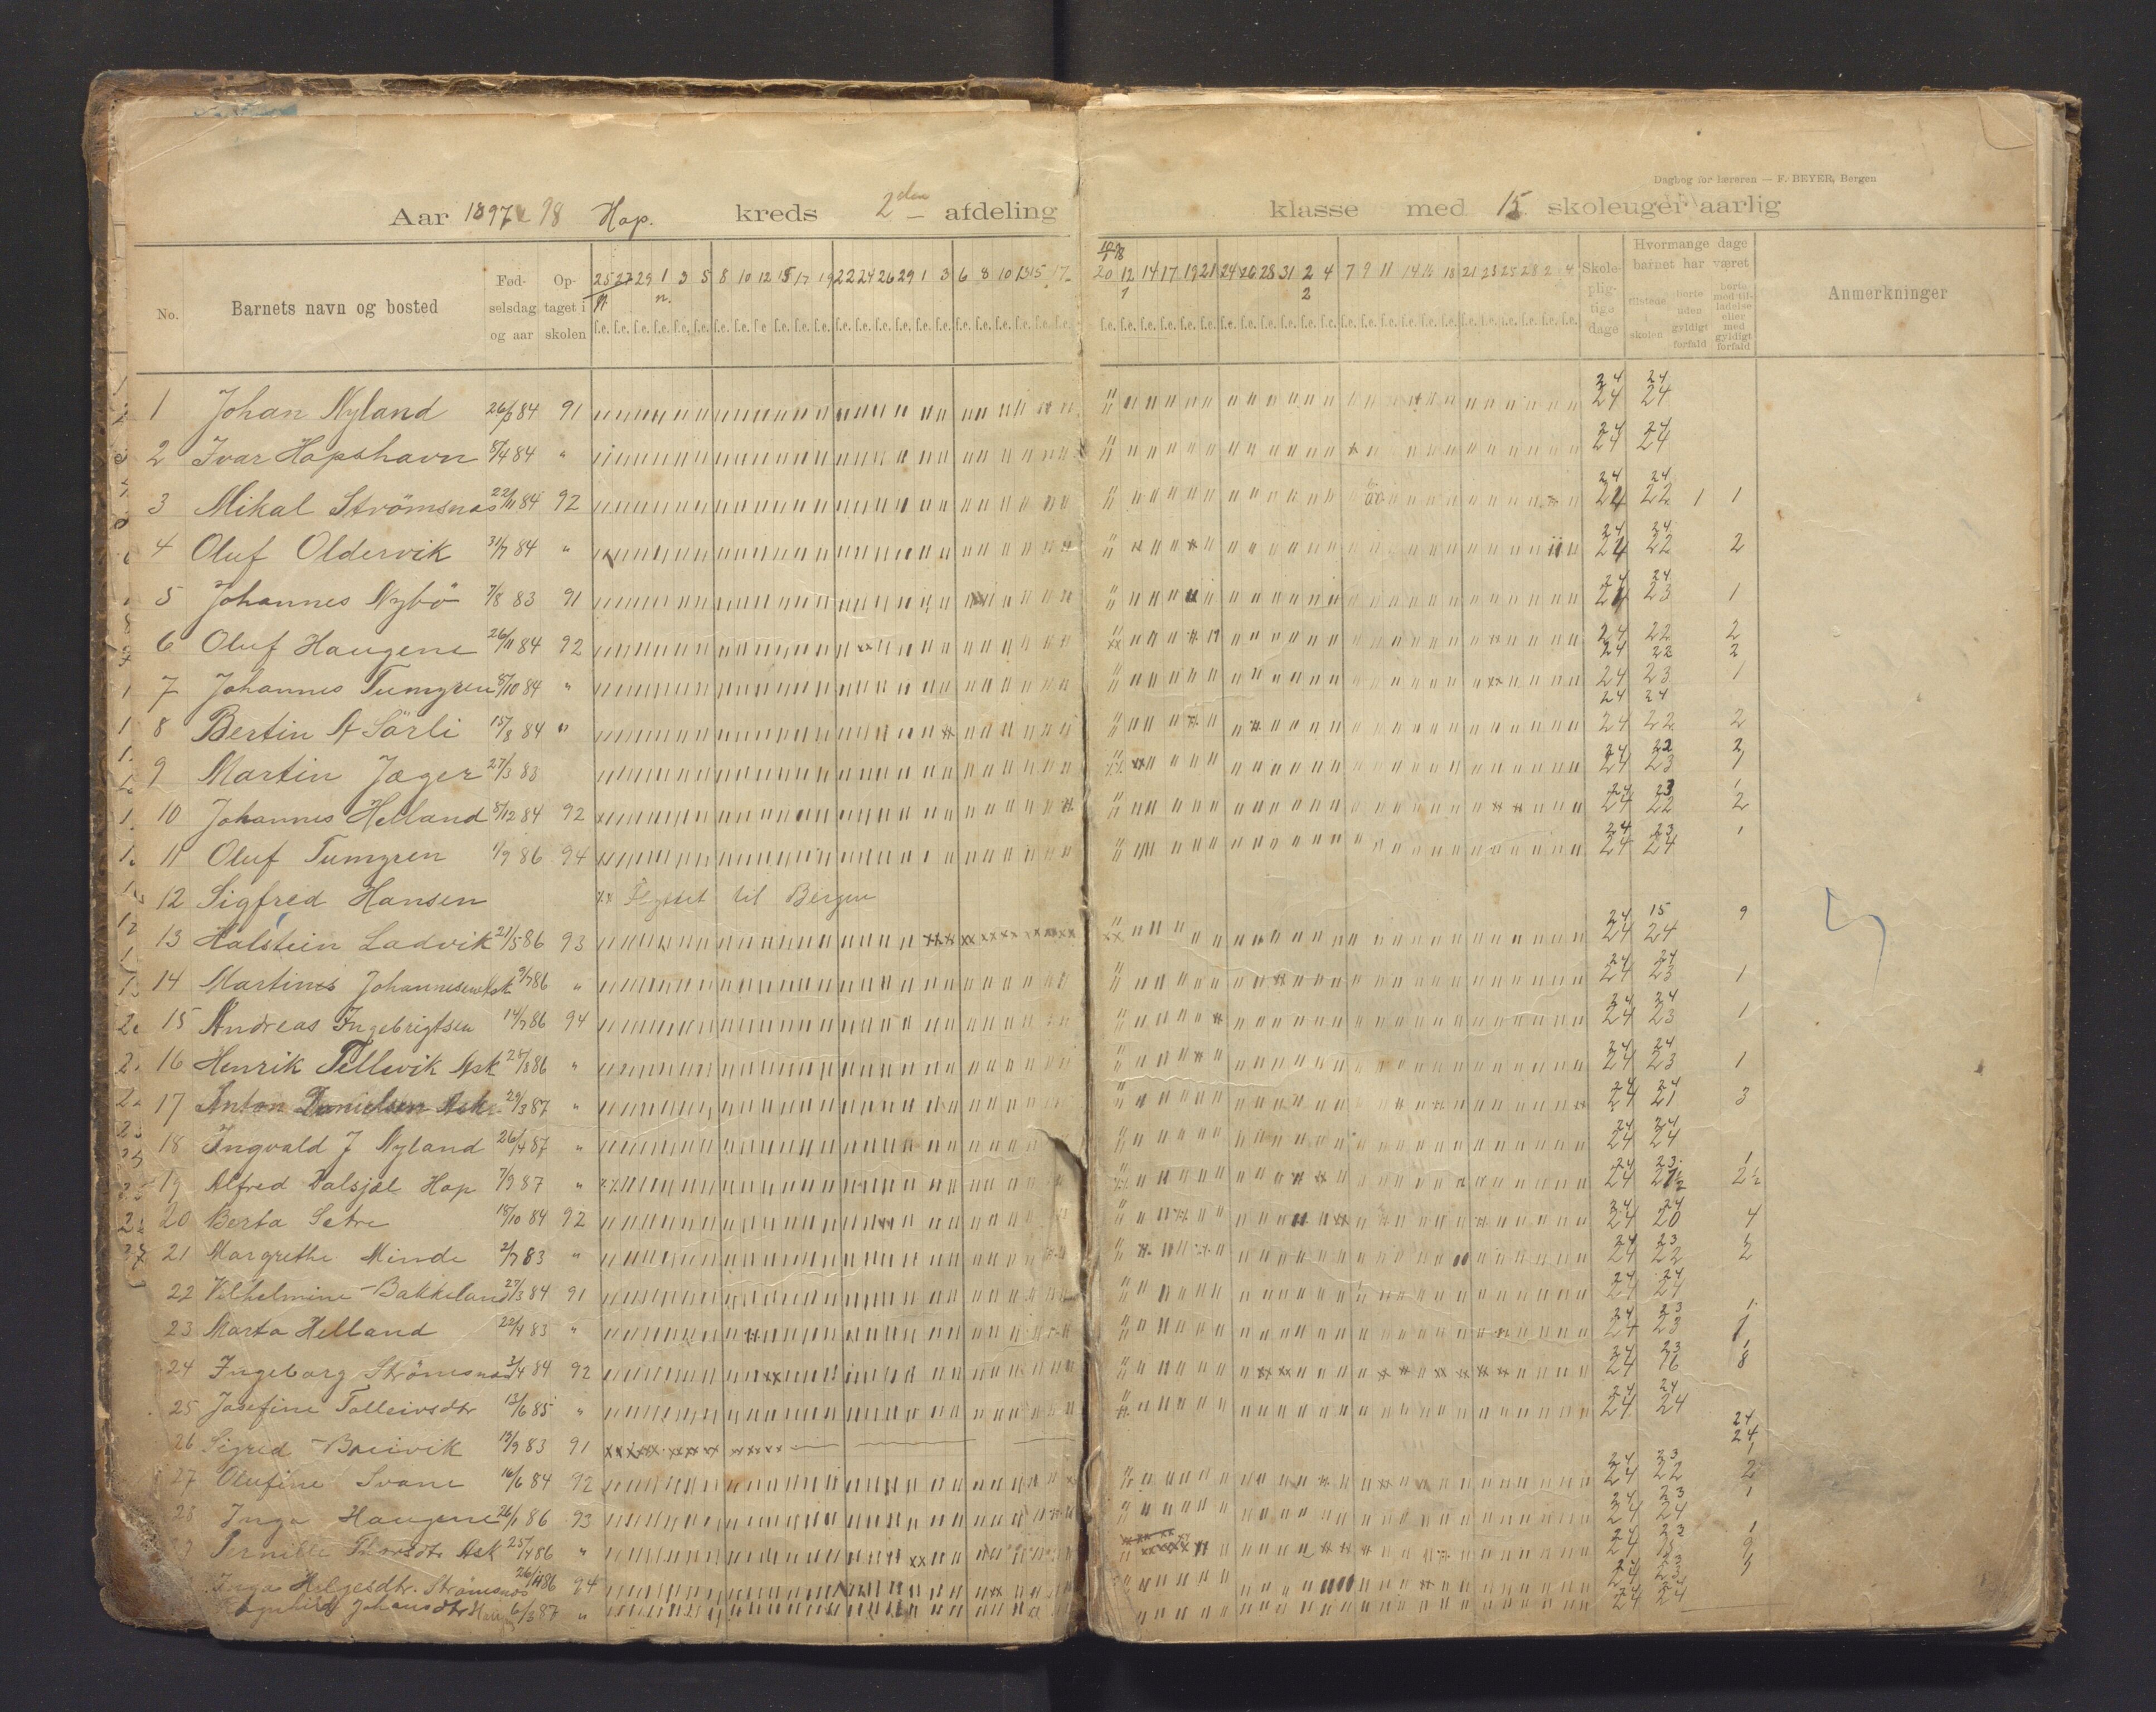 Dagbog for læreren — F. BEYER, Bergen
Aar 1897 98 Hop. kreds 2den afdeling klasse med 15 skoleuger aarlig
No. Barnets navn og bosted Fødselsdag og aar Optaget i skolen Skolepligtige dage Hvormange dage barnet har været tilstede i skolen borte uden gyldigt forfald borte med tilladelse eller med gyldigt forfald Anmerkninger
25 27 29 1 3 5 8 10 12 15 17 19 22 24 26 29 1 3 6 8 10 13 15 17
12 14 17 19 21 24 26 28 31 2 4 7 9 11 14 16 18 21 23 25 28 2 4
1 Johan Nyland 84 91 24 24
24 24
2 Ivar Hopshavn 8/4 84 " 24 24
24 24
3 Mikal Strömsnas 22/11 84 92 24 22 1 1
4 Oluf Oldervik 31/7 84 " 24 22 2
5 Johannes Nybö 7/8 83 91 24 23 1
6 Oluf Haugene 26/11 84 92 24 22 2
24 22 2
7 Johannes Tumgren 8/10 84 " 24 23 1
24 24
8 Bertin A Sörli 15/8 84 " 24 22 2
9 Martin Jæger 27/3 83 24 23
10 Johannes Helland 8/12 84 92 24 22 2
11 Oluf Tumgren 1/9 86 94 24 24
12 Sigfred Hansen Flyttet til Bergen
13 Halstein Ladvik 21/5 86 93 24 24
14 Martines Johannesen Ask 9/7 86 " 24 23 1
15 Andreas Ingebrigtsen 14/7 86 94 24 23 1
16 Henrik Tellevik Ask 28/8 86 " 24 23 1
17 Anton Danielsen Ask 29/3 87 " 24 21 3
18 Ingvald J Nyland 26/4 87 " 24 24
19 Alfred Dalsjøl Hop 7/9 87 " 24 21½ 2½
20 Berta Setre 18/10 84 92 24 20 4
21 Margrethe Minde 2/7 83 " 24 22 2
22 Vilhelmine Bakkeland 27/3 84 91 24 24
23 Marta Helland 22/4 83 " 24 23 1
24 Ingeborg Strömsnas 84 92 24 16 8
25 Josefine Tolleivsdtr 13/6 85 " 24 24
26 Sigred Breivik 19/9 83 91 24
27 Olufine Svane 16/6 84 92 24 22 2
28 Inga Haugene 86 93 24 24
Pernille Ask 25/4 86 " 24
Inga Helgesdtr. Strömsnes 26/11 86 94 24
Johansdtr 87 " 24 24